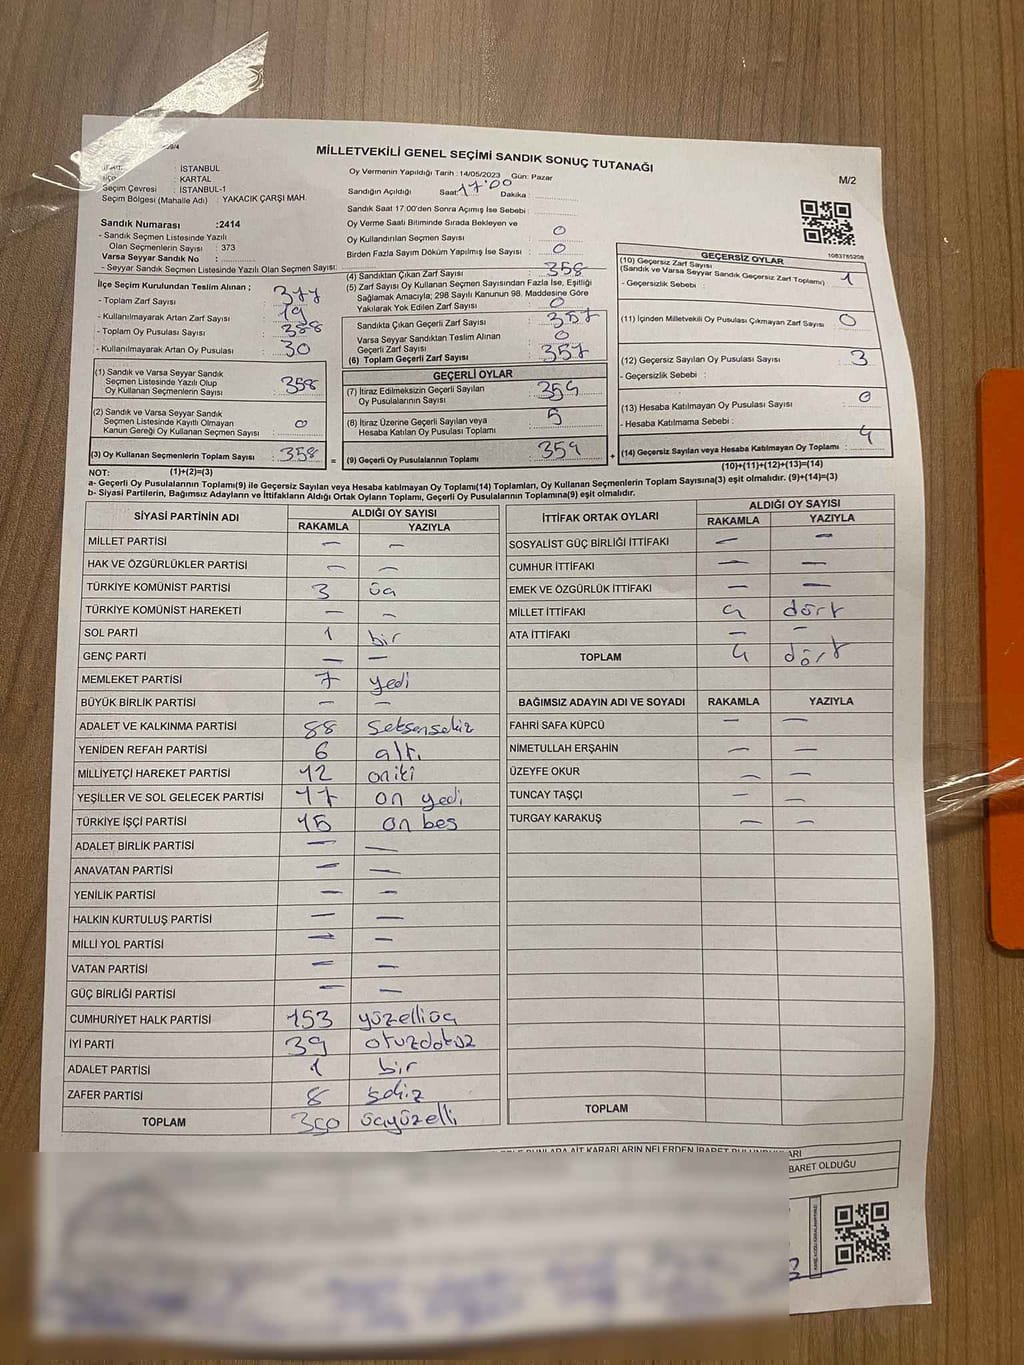 MİLLETVEKİLİ GENEL SEÇİMİ SANDIK SONUÇ TUTANAĞI
M/2
: İSTANBUL
: KARTAL
Seçim Çevresi : İSTANBUL-1
Seçim Bölgesi (Mahalle Adı) : YAKACIK ÇARŞI MAH.
Sandık Numarası :2414
- Sandık Seçmen Listesinde Yazılı
Olan Seçmenlerin Sayısı : 373
Varsa Seyyar Sandık No :
- Seyyar Sandık Seçmen Listesinde Yazılı Olan Seçmen Sayısı:
Oy Vermenin Yapıldığı Tarih :14/05/2023 Gün: Pazar
Sandığın Açıldığı Saat: 17:00 Dakika :
Sandık Saat 17:00'den Sonra Açımış İse Sebebi :
Oy Verme Saati Bitiminde Sırada Bekleyen ve
Oy Kullandırılan Seçmen Sayısı : 0
Birden Fazla Sayım Döküm Yapılmış İse Sayısı : 0
1083785208
İlçe Seçim Kurulundan Teslim Alınan ;
- Toplam Zarf Sayısı : 377
- Kullanılmayarak Artan Zarf Sayısı : 19
- Toplam Oy Pusulası Sayısı : 388
- Kullanılmayarak Artan Oy Pusulası : 30
(1) Sandık ve Varsa Seyyar Sandık
Seçmen Listesinde Yazılı Olup
Oy Kullanan Seçmenlerin Sayısı : 358
(2) Sandık ve Varsa Seyyar Sandık
Seçmen Listesinde Kayıtlı Olmayan
Kanun Gereği Oy Kullanan Seçmen Sayısı : 0
(3) Oy Kullanan Seçmenlerin Toplam Sayısı : 358
(4) Sandıktan Çıkan Zarf Sayısı : 358
(5) Zarf Sayısı Oy Kullanan Seçmen Sayısından Fazla İse, Eşitliği
Sağlamak Amacıyla; 298 Sayılı Kanunun 98. Maddesine Göre
Yakılarak Yok Edilen Zarf Sayısı : 0
Sandıkta Çıkan Geçerli Zarf Sayısı : 357
Varsa Seyyar Sandıktan Teslim Alınan
Geçerli Zarf Sayısı : 0
(6) Toplam Geçerli Zarf Sayısı : 357
GEÇERLİ OYLAR
(7) İtiraz Edilmeksizin Geçerli Sayılan
Oy Pusulalarının Sayısı : 354
(8) İtiraz Üzerine Geçerli Sayılan veya
Hesaba Katılan Oy Pusulası Toplamı : 5
= (9) Geçerli Oy Pusulalarının Toplamı : 354
GEÇERSİZ OYLAR
(10) Geçersiz Zarf Sayısı
(Sandık ve Varsa Seyyar Sandık Geçersiz Zarf Toplamı) : 1
- Geçersizlik Sebebi :
(11) İçinden Milletvekili Oy Pusulası Çıkmayan Zarf Sayısı : 0
(12) Geçersiz Sayılan Oy Pusulası Sayısı : 3
- Geçersizlik Sebebi :
(13) Hesaba Katılmayan Oy Pusulası Sayısı : 0
- Hesaba Katılmama Sebebi :
+ (14) Geçersiz Sayılan veya Hesaba Katılmayan Oy Toplamı : 4
NOT: (1)+(2)=(3) (10)+(11)+(12)+(13)=(14)
a- Geçerli Oy Pusulalarının Toplamı(9) ile Geçersiz Sayılan veya Hesaba katılmayan Oy Toplamı(14) Toplamları, Oy Kullanan Seçmenlerin Toplam Sayısına(3) eşit olmalıdır. (9)+(14)=(3)
b- Siyasi Partilerin, Bağımsız Adayların ve İttifakların Aldığı Ortak Oyların Toplamı, Geçerli Oy Pusulalarının Toplamına(9) eşit olmalıdır.
SİYASİ PARTİNİN ADI ALDIĞI OY SAYISI
RAKAMLA YAZIYLA
MİLLET PARTİSİ — —
HAK VE ÖZGÜRLÜKLER PARTİSİ — —
TÜRKİYE KOMÜNİST PARTİSİ 3 üç
TÜRKİYE KOMÜNİST HAREKETİ — —
SOL PARTİ 1 bir
GENÇ PARTİ — —
MEMLEKET PARTİSİ 7 yedi
BÜYÜK BİRLİK PARTİSİ — —
ADALET VE KALKINMA PARTİSİ 88 seksensekiz
YENİDEN REFAH PARTİSİ 6 altı
MİLLİYETÇİ HAREKET PARTİSİ 12 oniki
YEŞİLLER VE SOL GELECEK PARTİSİ 17 on yedi
TÜRKİYE İŞÇİ PARTİSİ 15 on beş
ADALET BİRLİK PARTİSİ — —
ANAVATAN PARTİSİ — —
YENİLİK PARTİSİ — —
HALKIN KURTULUŞ PARTİSİ — —
MİLLİ YOL PARTİSİ — —
VATAN PARTİSİ — —
GÜÇ BİRLİĞİ PARTİSİ — —
CUMHURİYET HALK PARTİSİ 153 yüzelliüç
İYİ PARTİ 39 otuzdokuz
ADALET PARTİSİ 1 bir
ZAFER PARTİSİ 8 sekiz
TOPLAM 350 üçyüzelli
İTTİFAK ORTAK OYLARI ALDIĞI OY SAYISI
RAKAMLA YAZIYLA
SOSYALİST GÜÇ BİRLİĞİ İTTİFAKI — —
CUMHUR İTTİFAKI — —
EMEK VE ÖZGÜRLÜK İTTİFAKI — —
MİLLET İTTİFAKI 4 dört
ATA İTTİFAKI — —
TOPLAM 4 dört
BAĞIMSIZ ADAYIN ADI VE SOYADI RAKAMLA YAZIYLA
FAHRİ SAFA KÜPCÜ — —
NİMETULLAH ERŞAHİN — —
ÜZEYFE OKUR — —
TUNCAY TAŞÇI — —
TURGAY KARAKUŞ — —
TOPLAM
BARET OLDUĞU